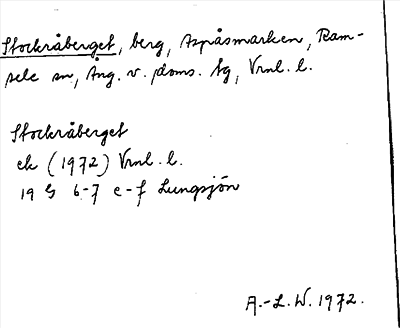 Stockråberget, berg, Aspåsmarken, Ram-
sele sn, Ång. v. doms. tg, Vrnl. l.
Stockråberget
ek (1972) Vrnl. l.
19 G 6-7 e-f Lungsjön
A.-L. W. 1972.